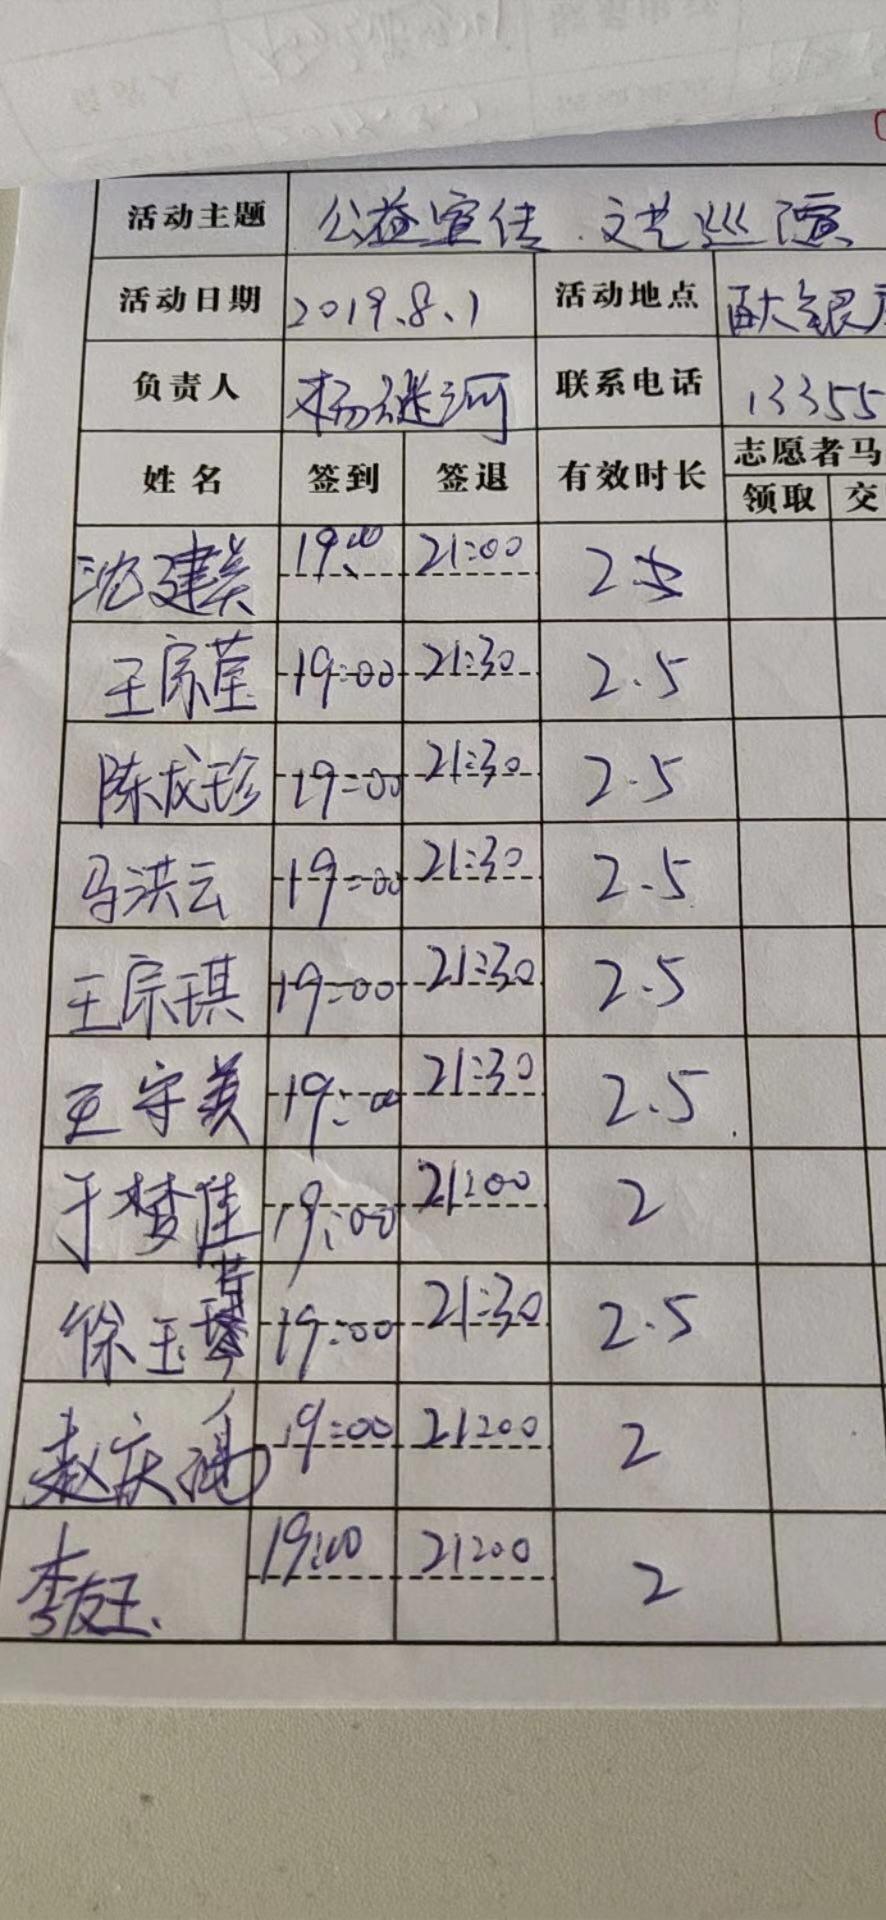 活动主题 公益宣传 文艺巡演
活动日期 2019.8.1 活动地点
负责人 杨继河 联系电话 13355
姓名 签到 签退 有效时长 志愿者马
领取 交
沈建美 19:00 21:00 2.5
王宗莹 19:00 21:30 2.5
陈成珍 19:00 21:30 2.5
马洪云 19:00 21:30 2.5
王宗琪 19:00 21:30 2.5
王守美 19:00 21:30 2.5
于梦佳 19:00 21:00 2
徐玉琴 19:00 21:30 2.5
赵庆 19:00 21:00 2
李友玉 19:00 21:00 2